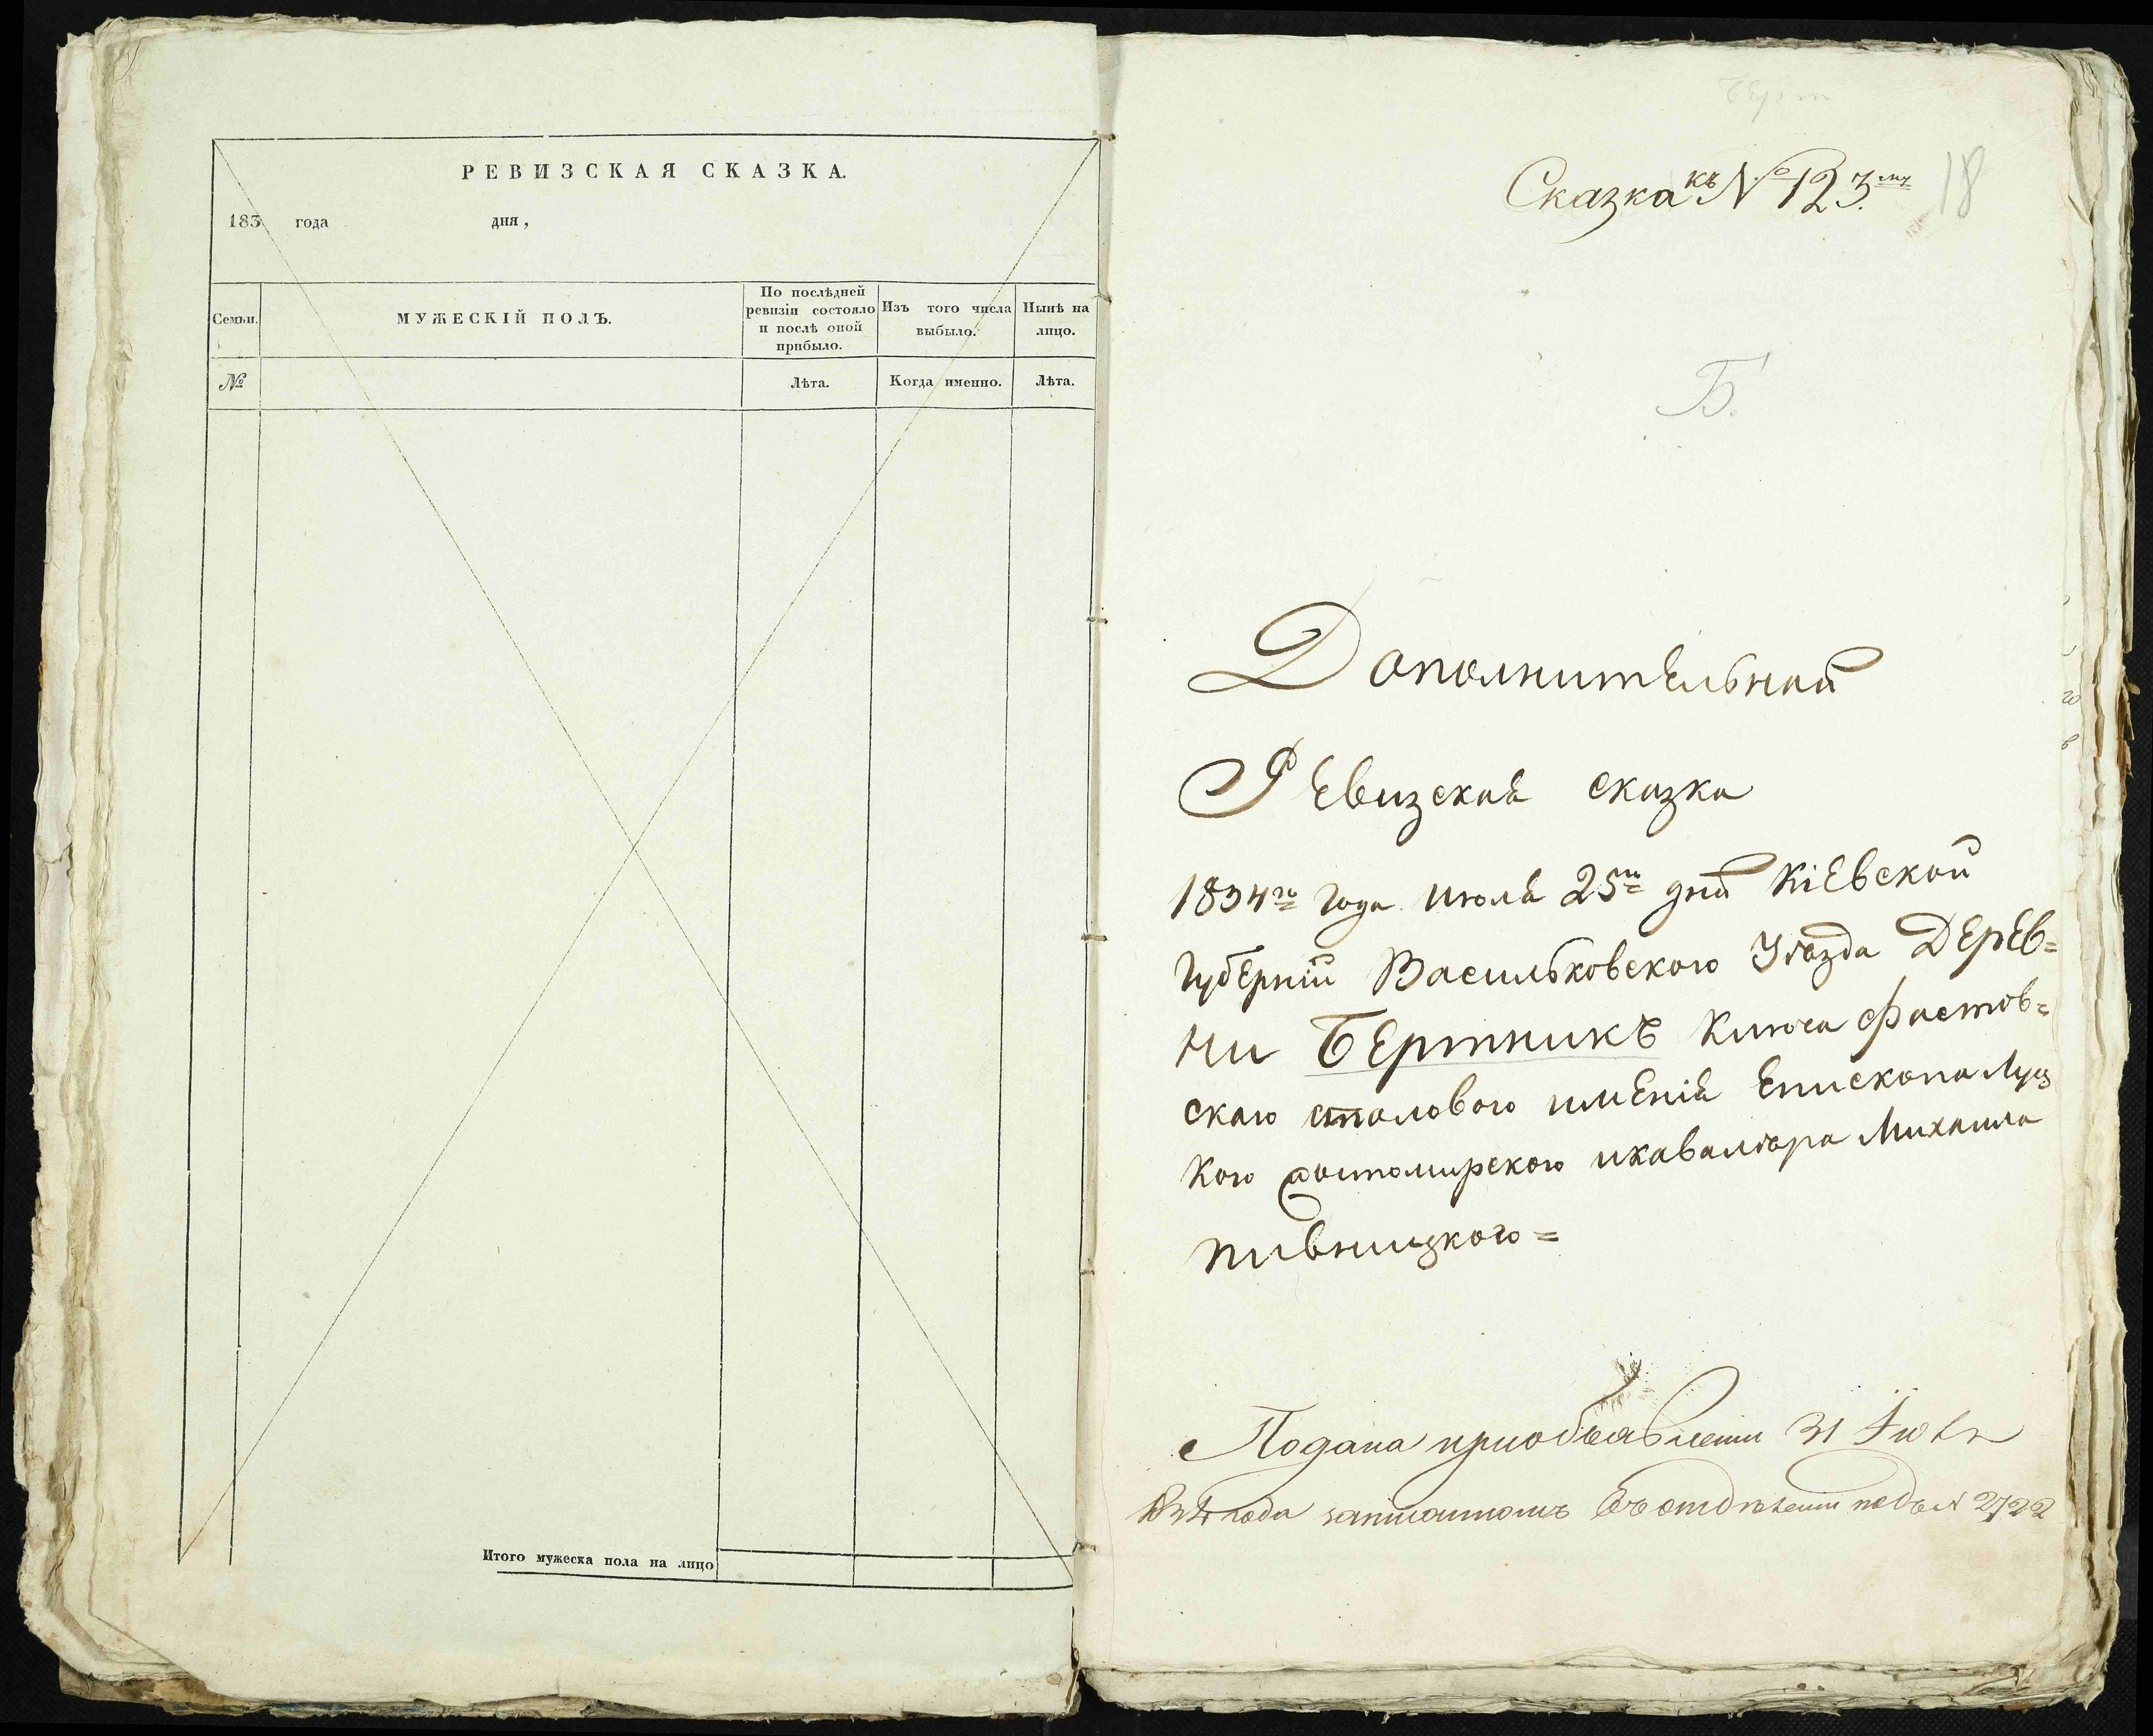 РЕВИЗСКАЯ СКАЗКА.
183 года дня,
Семьи.
МУЖЕСКІЙ ПОЛЪ.
По послѣдней
ревизіи состояло
и послѣ оной
прибыло.
Изъ того числа
выбыло.
Нынѣ на
лицо.
№
Лѣта.
Когда именно.
Лѣта.
Итого мужеска пола на лицо
Берт
Сказка къ № 123му
18
Б.
Дополнительная
Ревизская сказка
1834го года июля 25го дня Кіевской
Губерніи Васильковского Уѣзда Дерев=
ни Бертникъ Ключа Фастов=
скаго столового имѣнія Епископа Луц
кого Житомирского икавалѣра Михаила
Пивницкого=
Подана приобъявленіи 31 Іюля
1834 года записанномъ въ отдѣленіи подъ № 2722